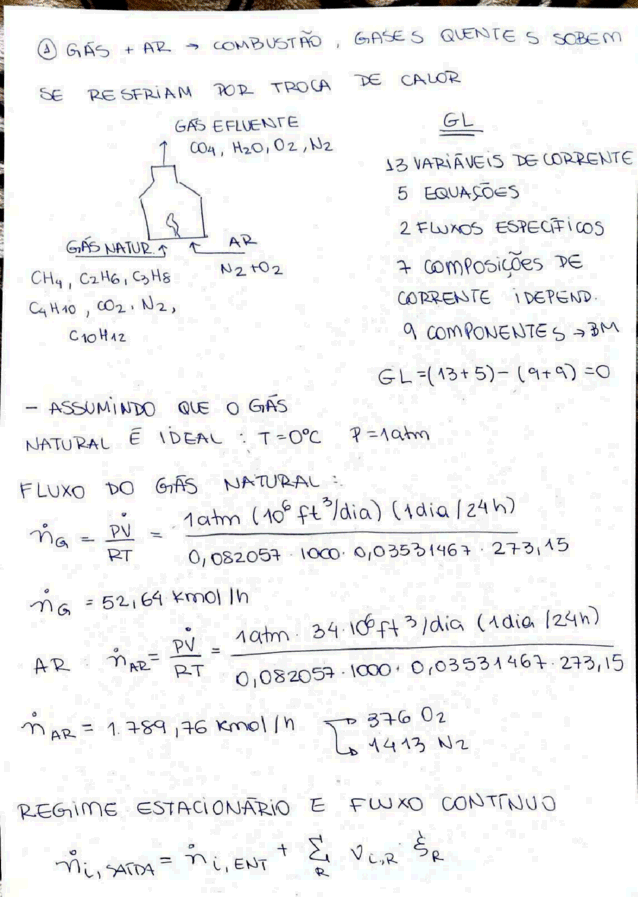 ① GÁS + AR → COMBUSTÃO, GASES QUENTES SOBEM
SE RESFRIAM POR TROCA DE CALOR
GÁS EFLUENTE
CO4, H2O, O2, N2
GÁS NATUR.
AR
N2 + O2
CH4, C2H6, C3H8
C4H10, CO2, N2,
C10H12
GL
13 VARIÁVEIS DE CORRENTE
5 EQUAÇÕES
2 FLUXOS ESPECÍFICOS
7 COMPOSIÇÕES DE
CORRENTE IDEPEND.
9 COMPONENTES → BM
GL = (13+5) - (9+9) = 0
- ASSUMINDO QUE O GÁS
NATURAL É IDEAL : T = 0°C P = 1atm
FLUXO DO GÁS NATURAL :
ṅG = PV̇/RT = 1atm (10⁶ ft³/dia) (1dia/24h) / 0,082057 · 1000 · 0,03531467 · 273,15
ṅG = 52,64 Kmol/h
AR ṅAR = PV̇/RT = 1atm · 34·10⁶ ft³/dia (1dia/24h) / 0,082057 · 1000 · 0,03531467 · 273,15
ṅAR = 1.789,76 Kmol/h → 376 O2
→ 1413 N2
REGIME ESTACIONÁRIO E FLUXO CONTÍNUO
ṅi, SAÍDA = ṅi, ENT + Σ R νi,R ξ̇R